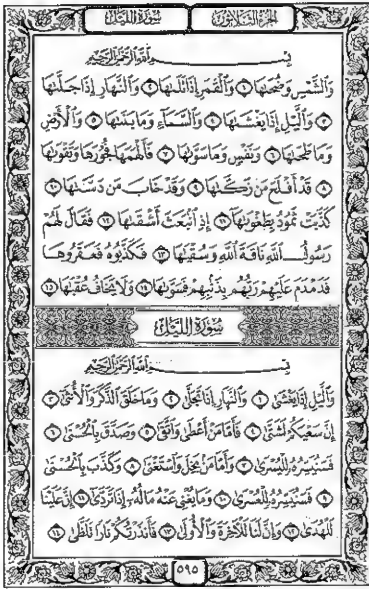 الجزء الثلاثون سُورَةُ اللَّيْلِ
بِسْمِ اللَّهِ الرَّحْمَٰنِ الرَّحِيمِ
وَٱلشَّمْسِ وَضُحَىٰهَا ١ وَٱلْقَمَرِ إِذَا تَلَىٰهَا ٢ وَٱلنَّهَارِ إِذَا جَلَّىٰهَا
٣ وَٱلَّيْلِ إِذَا يَغْشَىٰهَا ٤ وَٱلسَّمَآءِ وَمَا بَنَىٰهَا ٥ وَٱلْأَرْضِ
وَمَا طَحَىٰهَا ٦ وَنَفْسٍ وَمَا سَوَّىٰهَا ٧ فَأَلْهَمَهَا فُجُورَهَا وَتَقْوَىٰهَا
٨ قَدْ أَفْلَحَ مَن زَكَّىٰهَا ٩ وَقَدْ خَابَ مَن دَسَّىٰهَا ١٠
كَذَّبَتْ ثَمُودُ بِطَغْوَىٰهَآ ١١ إِذِ ٱنۢبَعَثَ أَشْقَىٰهَا ١٢ فَقَالَ لَهُمْ
رَسُولُ ٱللَّهِ نَاقَةَ ٱللَّهِ وَسُقْيَٰهَا ١٣ فَكَذَّبُوهُ فَعَقَرُوهَا
فَدَمْدَمَ عَلَيْهِمْ رَبُّهُم بِذَنۢبِهِمْ فَسَوَّىٰهَا ١٤ وَلَا يَخَافُ عُقْبَٰهَا ١٥
سُورَةُ اللَّيْلِ
بِسْمِ اللَّهِ الرَّحْمَٰنِ الرَّحِيمِ
وَٱلَّيْلِ إِذَا يَغْشَىٰ ١ وَٱلنَّهَارِ إِذَا تَجَلَّىٰ ٢ وَمَا خَلَقَ ٱلذَّكَرَ وَٱلْأُنثَىٰٓ ٣
إِنَّ سَعْيَكُمْ لَشَتَّىٰ ٤ فَأَمَّا مَنْ أَعْطَىٰ وَٱتَّقَىٰ ٥ وَصَدَّقَ بِٱلْحُسْنَىٰ ٦
فَسَنُيَسِّرُهُۥ لِلْيُسْرَىٰ ٧ وَأَمَّا مَنۢ بَخِلَ وَٱسْتَغْنَىٰ ٨ وَكَذَّبَ بِٱلْحُسْنَىٰ
٩ فَسَنُيَسِّرُهُۥ لِلْعُسْرَىٰ ١٠ وَمَا يُغْنِى عَنْهُ مَالُهُۥٓ إِذَا تَرَدَّىٰٓ ١١ إِنَّ عَلَيْنَا
لَلْهُدَىٰ ١٢ وَإِنَّ لَنَا لَلْءَاخِرَةَ وَٱلْأُولَىٰ ١٣ فَأَنذَرْتُكُمْ نَارًا تَلَظَّىٰ ١٤
٥٩٥